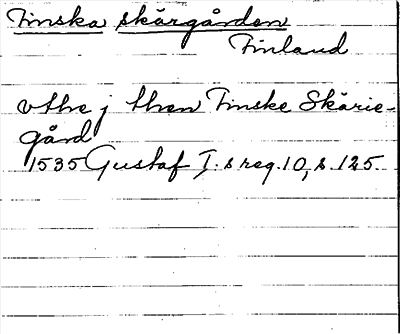 Finska skärgården
Finland
vthe j then Finske Skärie-
gård
1535 Gustaf I:s reg. 10, s. 125.